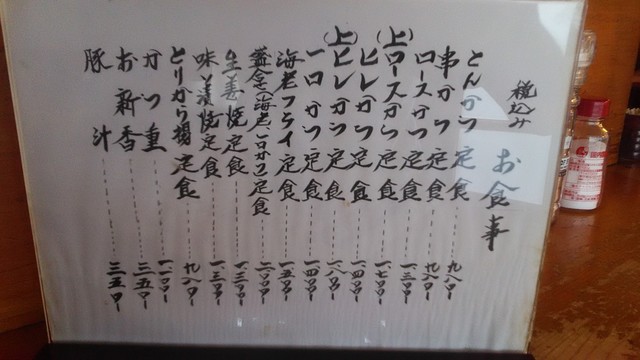 お食事
税込み
とんかつ定食 九八〇
串かつ定食 九八〇
ロースかつ定食 一、三〇〇
(上)ロースかつ定食 一、七〇〇
ヒレかつ定食 一、四〇〇
(上)ヒレかつ定食 一、八〇〇
一口かつ定食 一、四〇〇
海老フライ定食 一、五〇〇
盛合(海老、一口かつ)定食 二、〇〇〇
生姜焼定食 一、三〇〇
味噌焼定食 一、三〇〇
とりから揚定食 九八〇
かつ重 一、一〇〇
お新香 三五〇
豚汁 三五〇